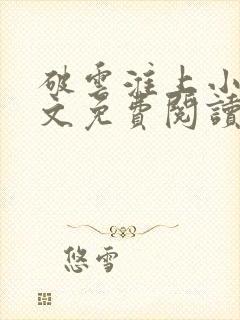 破雲淮上小
文免費閱讀
悠雪